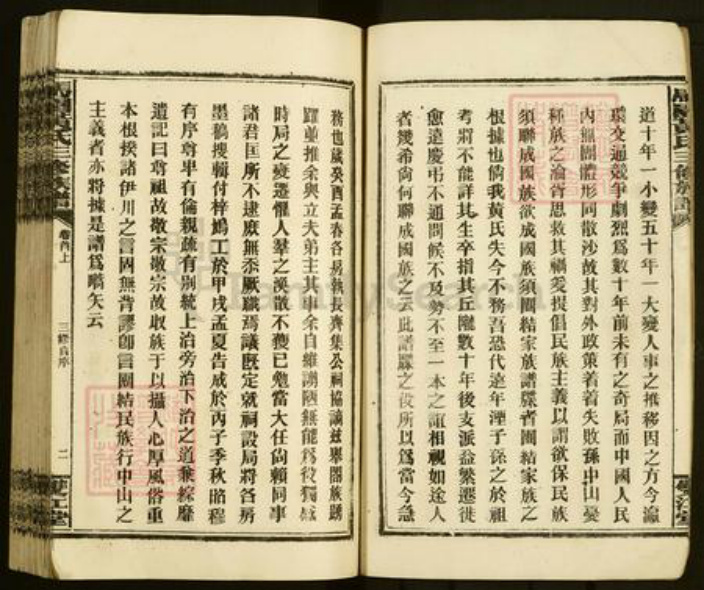 道十年一小變五十年一大變人事之推移因之方今瀛
環交通競爭劇烈爲數十年前未有之奇局而中國人民
內無團體形同散沙故其對外政策着着失敗孫中山憂
種族之淪胥思救其禍爰提倡民族主義以謂欲保民族
須聯成國族欲成國族須團結家族譜牒者團結家族之
根據也倘我黃氏失今不務吾恐代遠年湮子孫之於祖
考將不能詳其生卒指其丘隴數十年後支派益繁遷徙
愈遠慶弔不通問候不及勢不至一本之誼相視如途人
者幾希尙何聯成國族之云此譜牒之役所以爲當今急
務也歲癸酉孟春各房執長齊集公祠協議茲舉闔族踴
躍並推余與立夫弟主其事余自維謭陋無能爲役獨感
時局之變遷懼人羣之渙散不獲已勉當大任尙賴同事
諸君匡所不逮庶無忝厥職焉議既定就祠設局將各房
墨稿搜輯付梓鳩工於甲戌孟夏告成於丙子季秋昭穆
有序尊卑有倫親疏有別統上治旁治下治之道兼綜靡
遺記曰尊祖故敬宗敬宗故收族于以攝人心厚風俗重
本根揆諸伊川之言固無背謬卽言團結民族行中山之
主義者亦將據是譜爲嚆矢云
氏三修族譜
卷首上
三修自序
二
雙江堂